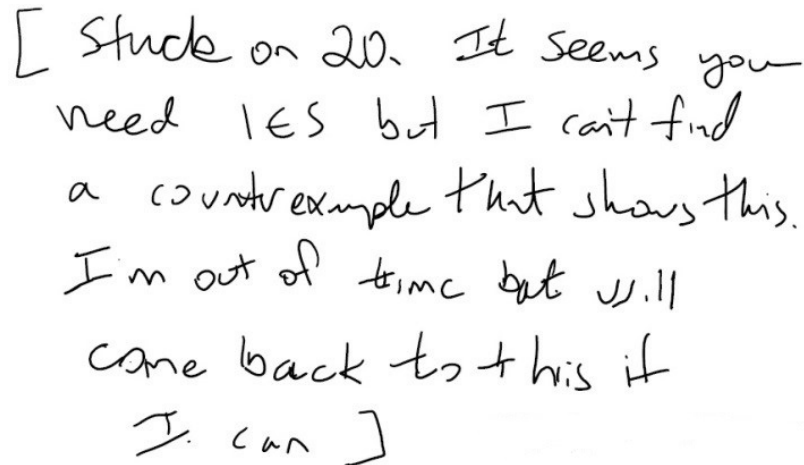 [ Stuck on 20. It seems you
need 1∈S but I can't find
a counterexample that shows this.
I'm out of time but will
come back to this if
I can ]